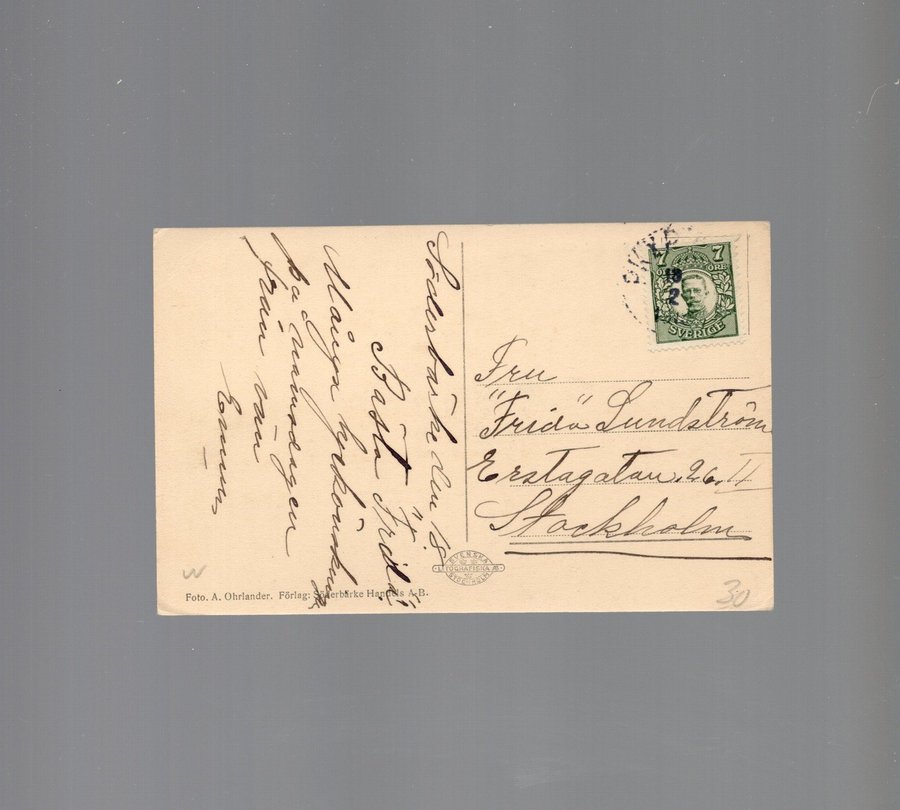 Söderbärke den 18
Bästa "Frida"
Många lyckönskningar
på namnsdagen
från vän
Emma
7 7
ÖRE ÖRE
SVERIGE
18
2
Fru
"Frida" Lundström
Erstagatan 26. II
Stockholm
SVENSKA
LITOGRAFISKA AB
STOCKHOLM
Foto. A. Ohrlander. Förlag: Söderbärke Handels A-B.
W
30